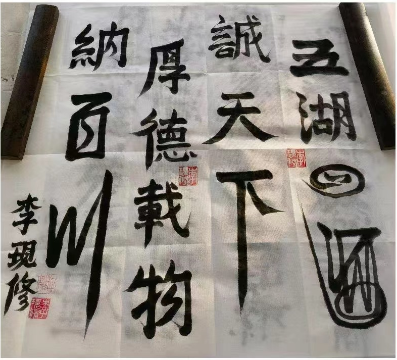 五湖四
誠天下
厚德載物
納百川
李現修